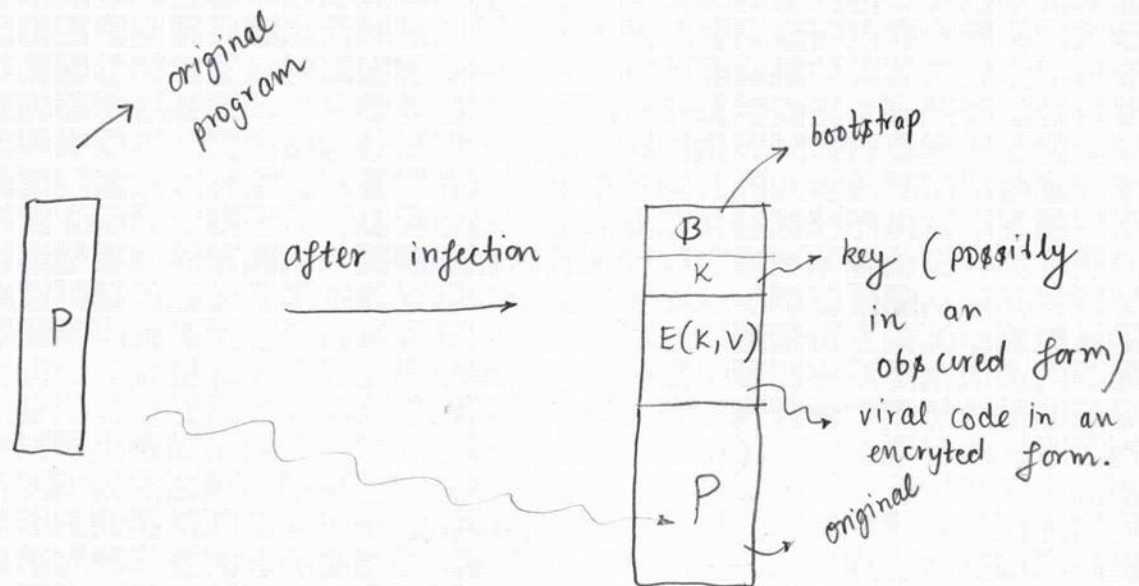 original
program
P
after infection
bootstrap
B
K
key (possitly
in an
obscured form)
E(K,V)
viral code in an
encryted form.
P
original